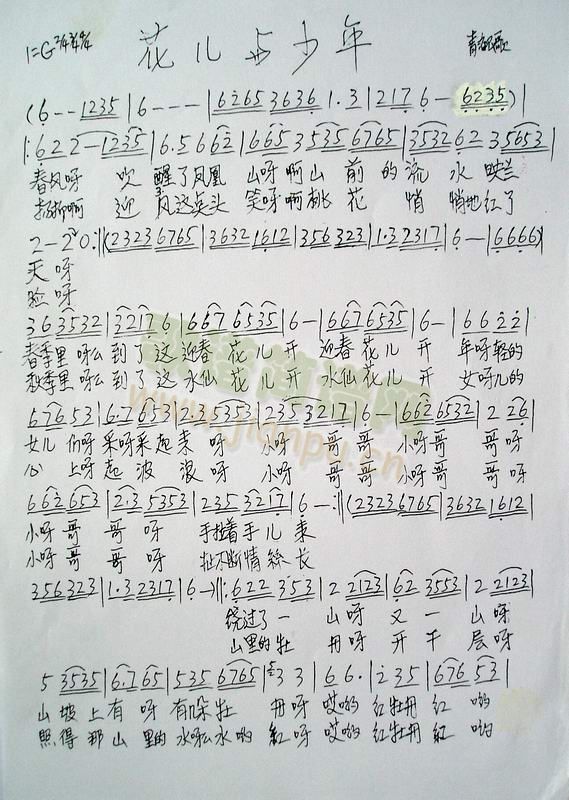 1=G 2/4 3/4 4/4 花儿与少年 青海民歌
(6 - - 1235 | 6 - - - | 6265 3636 1·3 | 217 6 - 6235) |
|: 6 2 2 - 1235 | 6·5 6 62 | 665 3535 6765 | 3532 62 3 5653 |
春风呀 吹 醒了凤凰 山呀啊山 前 的流 水 映兰
杨柳啊 迎 风这点头 笑呀啊桃 花 悄 悄地红了
2 - 2 0 :|| (2323 6765 | 3632 1612 | 356 323 | 1·3 2317 | 6 - | 6666)
天 呀
脸 呀
36 3532 | 3217 6 | 667 6535 | 6 - | 667 6535 | 6 - | 6 6 2 2 |
春季里 呀么 到了这 迎春 花儿 开 迎春 花儿 开 年呀轻的
秋季里 呀么 到了这 水仙 花儿 开 水仙 花儿 开 女呀儿的
676 53 | 6·7 653 | 235 3553 | 235 3217 | 6 - | 662 6532 | 2 26 |
女儿 们呀 采呀采起来 呀 小呀 哥 哥 小呀哥 哥呀
心 上呀 起 波 浪 呀 小呀 哥 哥 小呀哥 哥呀
662 653 | 2·3 5353 | 235 3217 | 6 - :|| (2323 6765 | 3632 1612 |
小呀 哥 哥 呀 手拉着 手儿 来
小呀 哥 哥 呀 扯不断 情絲 长
356 323 | 1·3 2317 | 6 -) ||: 622 353 | 2 2123 | 62 3553 | 2 2123 |
绕过了一 山呀 又 一 山呀
山里的牡 丹呀 开 千 层呀
5 3535 | 6·7 65 | 535 6765 | 3 3 | 6 6· | 2 35 | 676 53 |
山 坡 上有 呀 有朵 牡 丹呀 哎哟 红牡丹 红 哟
照得 那山 里的 水呀么水哟 紅呀 哎哟 红牡丹 紅 哟
www.jianpu.cn